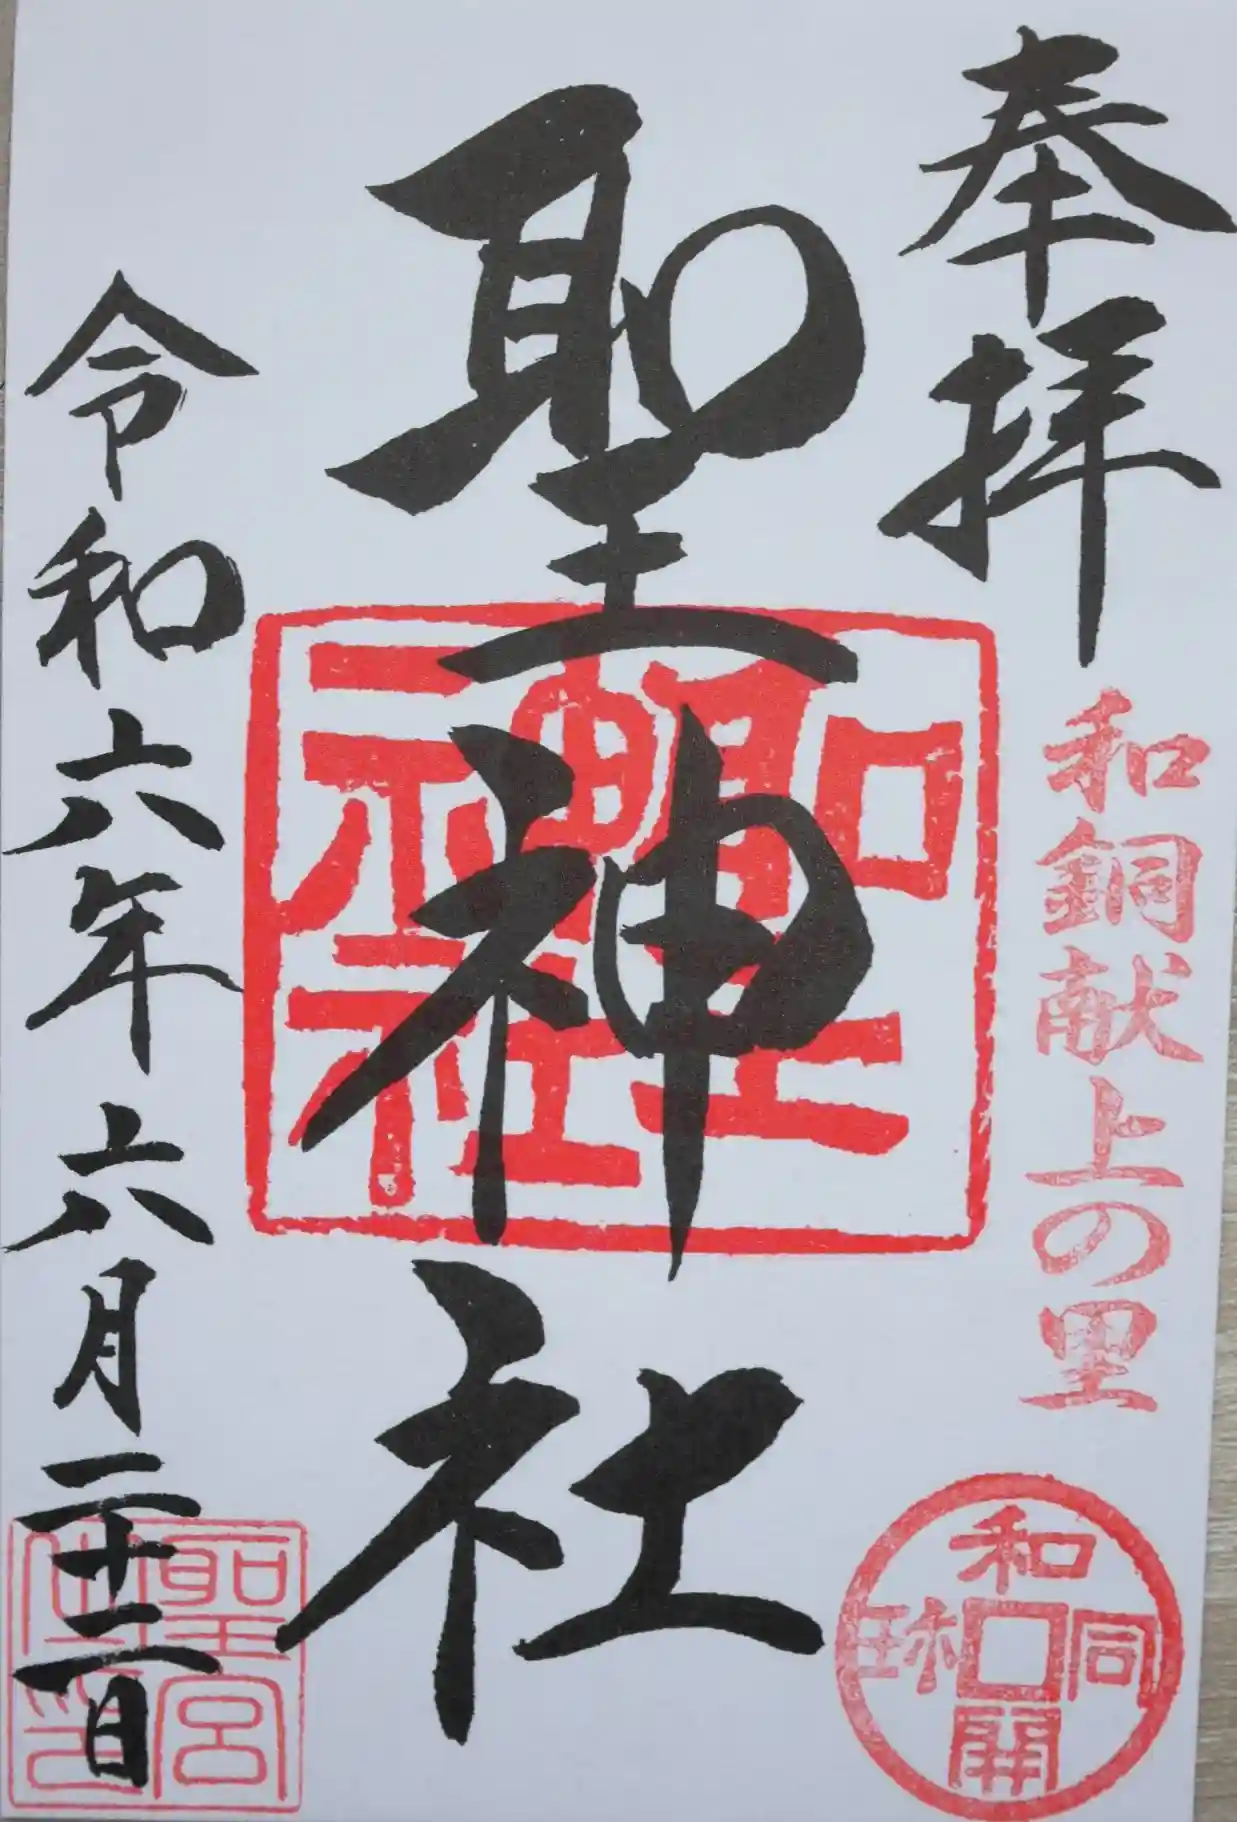 奉拝
和銅献上の里
和同開珎
聖神社
聖神社
令和六年六月二十二日
聖宮